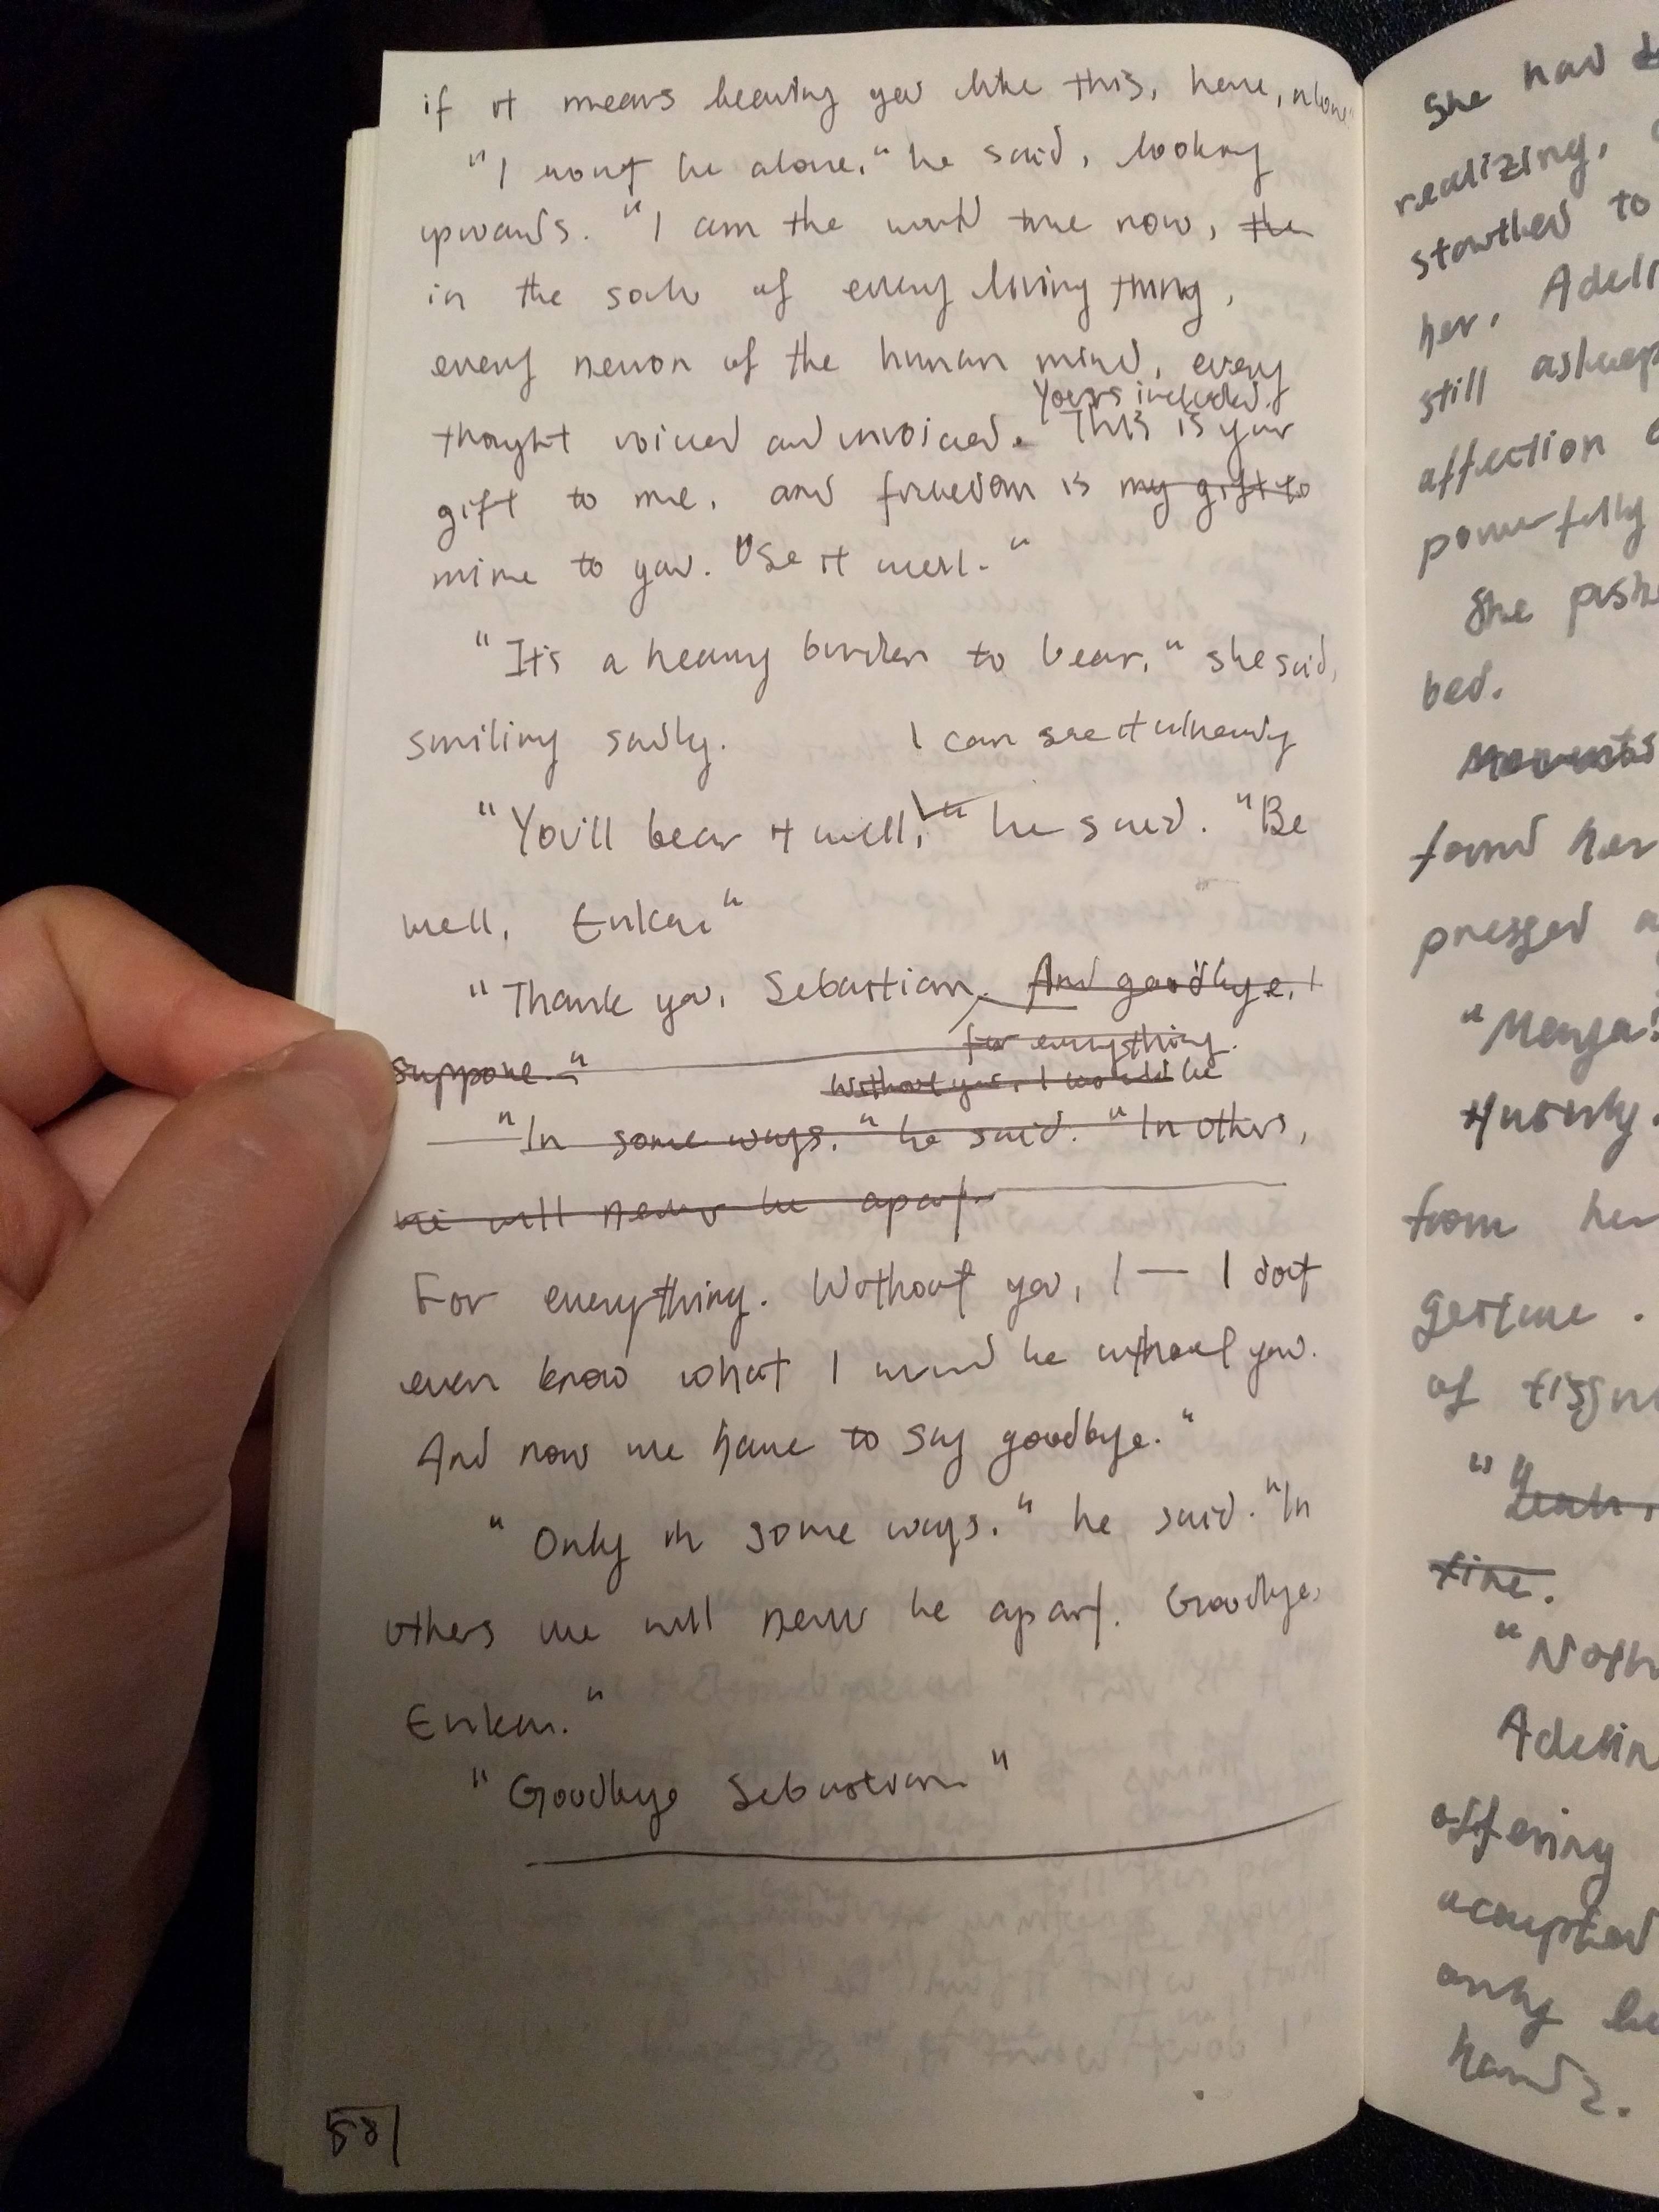 if it means leaving you like this, here, alone.
"I won't be alone," he said, looking
upwards. "I am the world tree now, the
in the souls of every living thing,
every neuron of the human mind, every
Yours included.
thought voiced and unvoiced. This is your
gift to me, and freedom is my gift to
mine to you. Use it well."
"It's a heavy burden to bear," she said,
smiling sadly.
I can see it already
"You'll bear it well," he said. "Be
well, Erika."
"Thank you, Sebastian. And goodbye, I
for everything.
suppose."
Without you, I would be
"In some ways." he said. "In others,
we will never be apart.
For everything. Without you, I — I don't
even know what I would be without you.
And now we have to say goodbye."
"Only in some ways." he said. "In
others we will never be apart. Goodbye,
Erika."
"Goodbye Sebastian"
58
She had
realizing,
to
her,
still asleep
affection
powerfully
She
bed.
Moments
found her
pressed
"Menja!
from her
gesture.
of
"Yeah,
fine.
offering
accepted
only
hands.